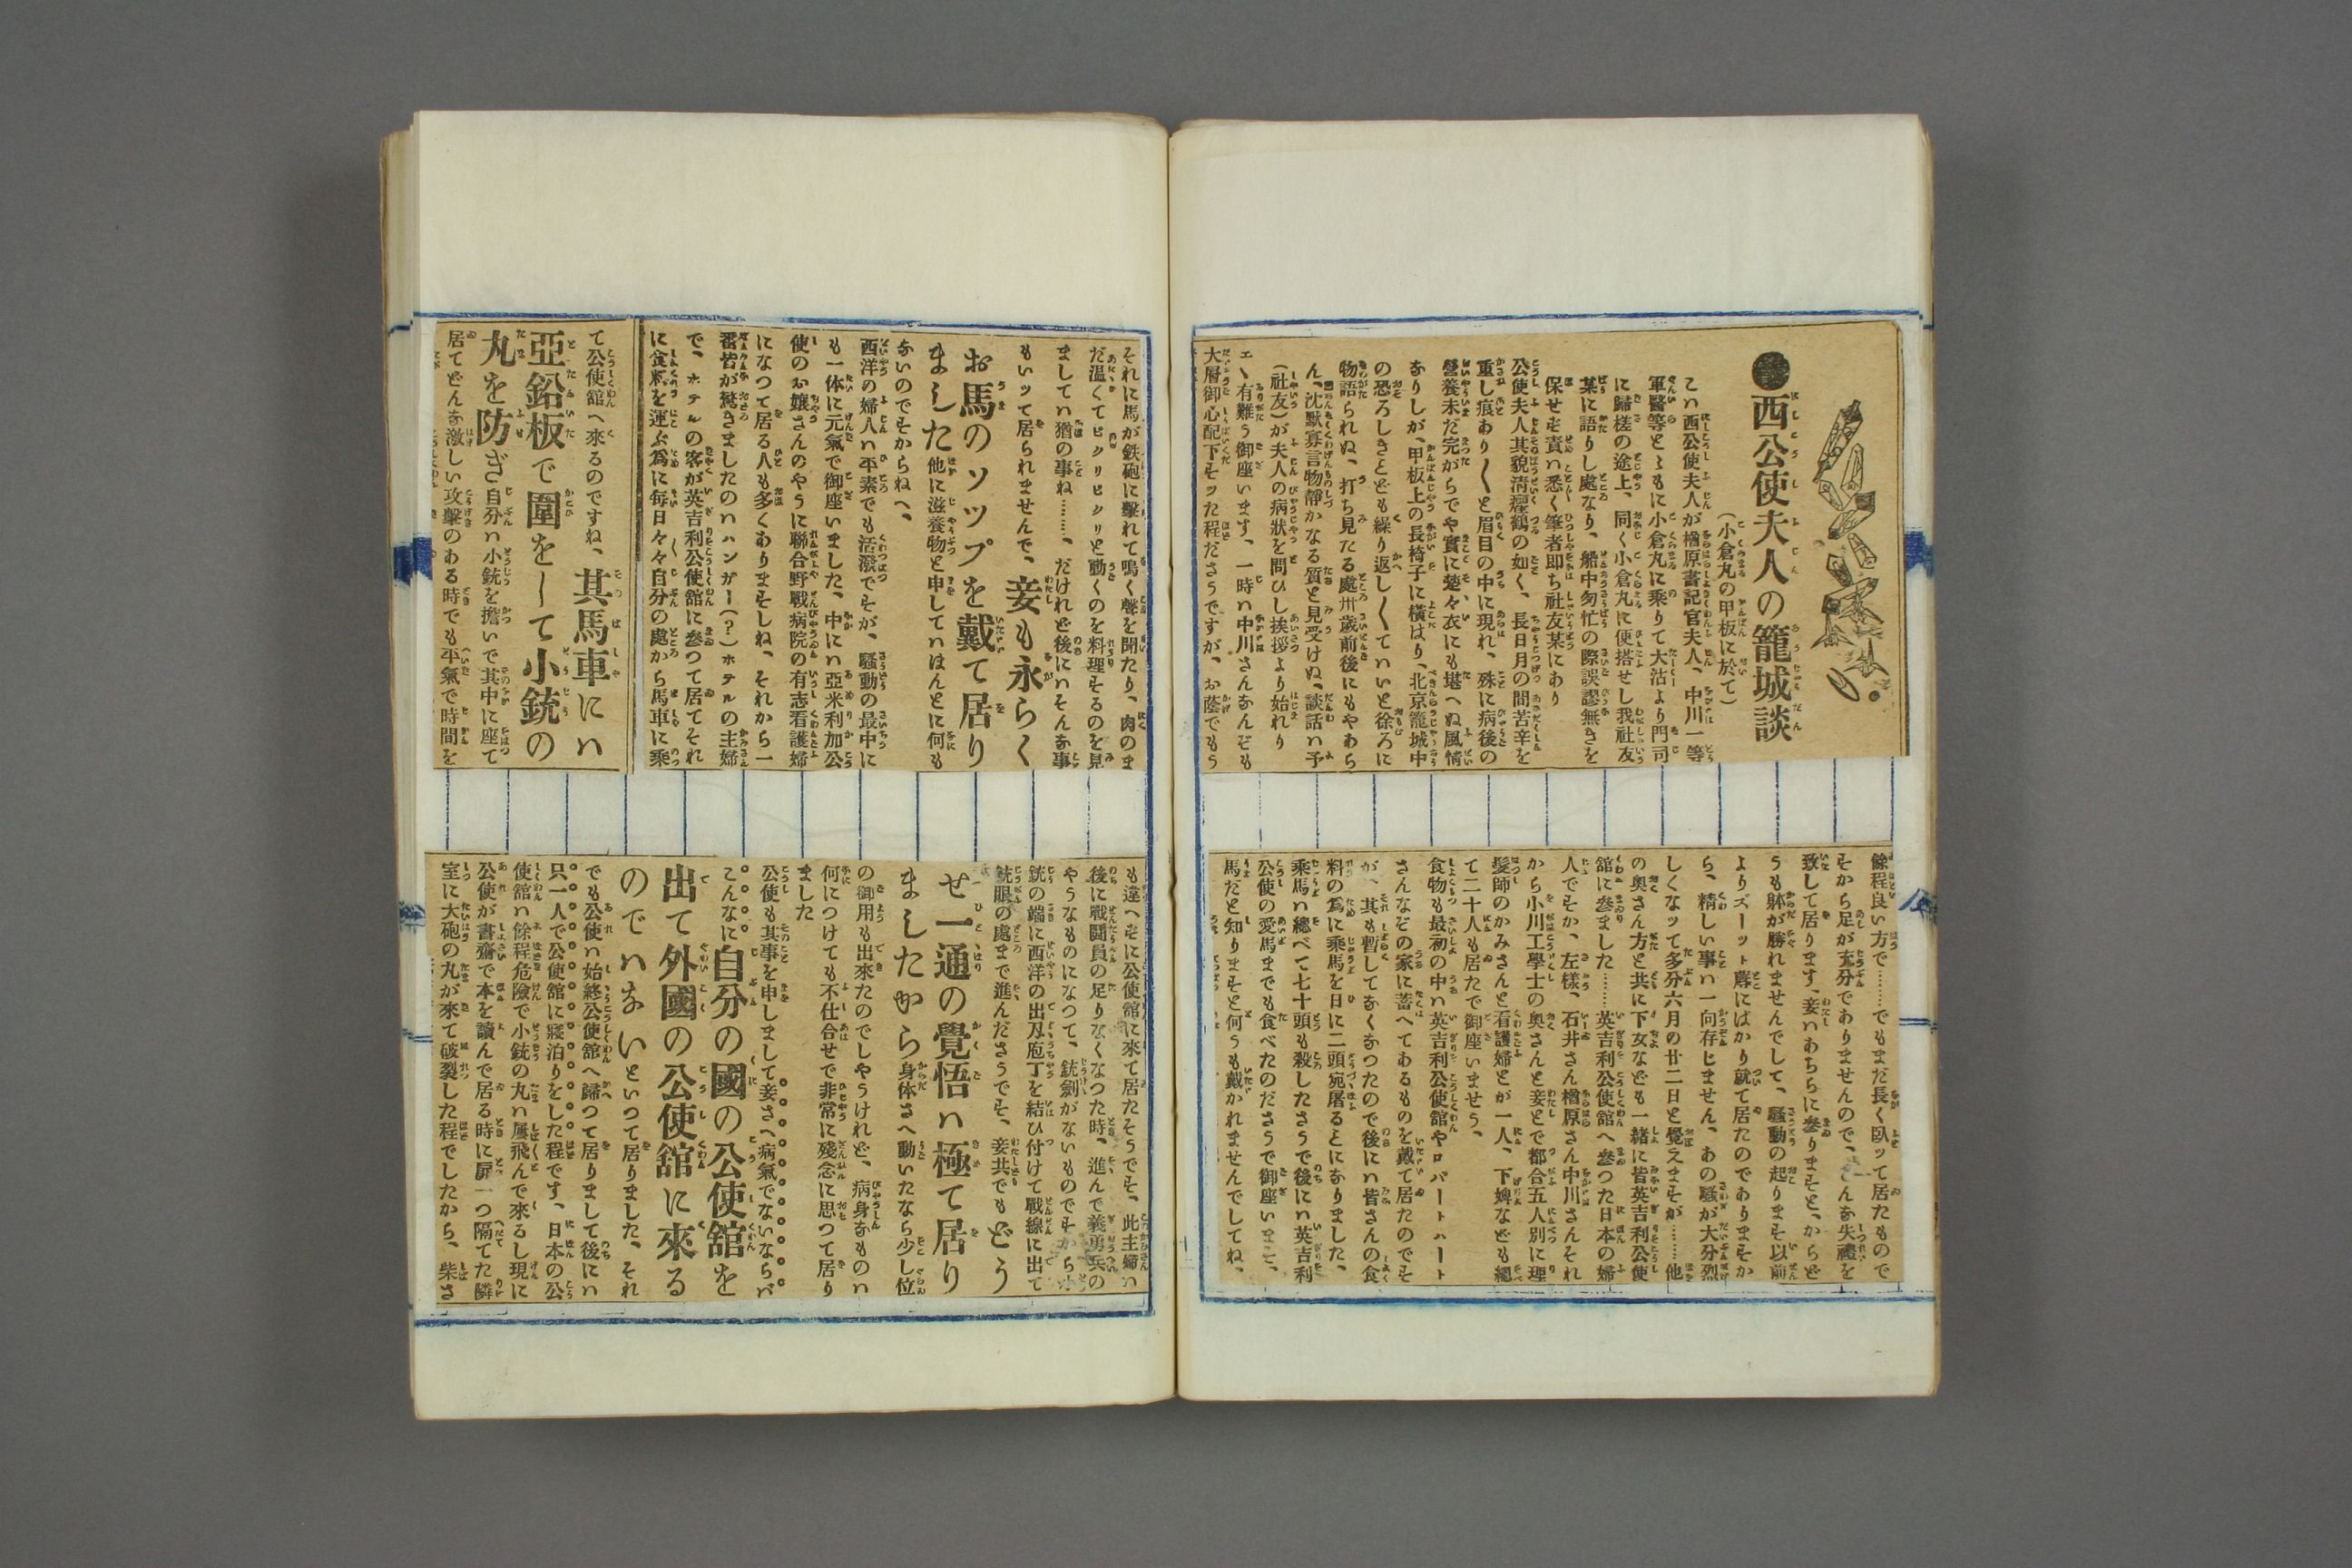 ●西公使夫人の籠城談
(小倉丸の甲板に於て)
こハ西公使夫人が楢原書記官夫人、中川一等
軍醫等とゝもに小倉丸に乘りて大沽より門司
に歸槎の途上、同く小倉丸に便搭せし我社友
某に語りし處なり、船中匆忙の際誤謬無きを
保せず責ハ悉く筆者即ち社友某にあり
公使夫人其貌清癯鶴の如く、長日月の間苦辛を
重し痕あり〱と眉目の中に現れ、殊に病後の
營養未だ完がらでや實に楚々衣にも堪へぬ風情
なりしが、甲板上の長椅子に横はり、北京籠城中
の恐ろしきとども繰り返し〱ていいと徐ろに
物語られぬ、打ち見たる處卅歳前後にもやあら
ん、沈默寡言物靜かなる質と見受けぬ、談話ハ予
(社友)が夫人の病狀を問ひし挨拶より始れり
エヽ有難う御座います、一時ハ中川さんなんぞも
大層御心配下すッた程ださうですが、お蔭でもう
餘程良い方で………でもまだ長く臥ッて居たもので
すから足が充分でありませんので、こんな失禮を
致して居ります、妾ハあちらに參りますと、からど
うも躰が勝れませんでして、騷動の起ります以前
よりズーット蓐にばかり就て居たのでありますか
ら、精しい事ハ一向存じません、あの騷が大分烈
しくなッて多分六月の廿二日と覺えますが……他
の奧さん方と共に下女なども一緒に皆英吉利公使
舘に參ました………英吉利公使舘へ參つた日本の婦
人ですか、左樣、石井さん楢原さん中川さんそれ
から小川工學士の奧さんと妾とで都合五人別に理
髮師のかみさんと看護婦とが一人、下婢なども總
て二十人も居たで御座いませう、
食物も最初の中ハ英吉利公使舘やロバートハート
さんなぞの家に蓄へてあるものを戴て居たのです
が、其も暫してなくなつたので後にハ皆さんの食
料の爲に乘馬を日に二頭宛屠るとになりました、
乘馬ハ總べて七十頭も殺したさうで後にハ英吉利
公使の愛馬までも食べたのださうで御座います、
馬だと知りますと何うも戴かれませんでしてね、
それに馬が鉄砲に擊れて鳴く聲を聞たり、肉のま
だ温くてビクリビクリと動くのを料理するのを見
ましてハ猶の事ね………、だけれど後にハそんな事
もいッて居られませんで、妾も永らく
お馬のソップを戴て居り
ました他に滋養物と申してハほんとに何も
ないのですからねへ、
西洋の婦人ハ平素でも活潑ですが、騷動の最中に
も一体に元氣で御座いました、中にハ亞米利加公
使のお孃さんのやうに聯合野戰病院の有志看護婦
になつて居る人も多くありましね、それから一
番皆が驚きましたのハハンガー(?)ホテルの主婦
で、ホテルの客が英吉利公使舘に參つて居てそれ
に食料を運ぶ爲に毎日々々自分の處から馬車に乘
て公使舘へ來るのですね、其馬車にハ
亞鉛板で圍をして小銃の
丸を防ぎ自分ハ小銃を擔いで其中に座て
居てどんな激しい攻擊のある時でも平氣で時間を
も違へずに公使舘に來て居たそうです、此主婦ハ
後に戰鬪員の足りなくなつた時、進んで義勇兵の
やうなものになつて、銃劍がないものですから小
銃の端に西洋の出刄庖丁を結ひ付けて戰線に出て
銃眼の處まで進んださうです、妾共でもどう
せ一通の覺悟ハ極て居り
ましたから身体さへ動いたなら少し位
の御用も出來たのでしやうけれど、病身なものハ
何につけても不仕合せで非常に殘念に思つて居り
ました
公使も其事を申しまして妾さへ病氣でないならバ
こんなに自分の國の公使舘を
出て外國の公使舘に來る
のでハないといつて居りました、それ
でも公使ハ始終公使舘へ歸つて居りまして後にハ
只一人で公使舘に寢泊りをした程です、日本の公
使舘ハ餘程危險で小銃の丸ハ屢飛んで來るし現に
公使が書齋で本を讀んで居る時に扉一つ隔てた隣
室に大砲の丸が來て破裂した程でしたから、柴さ